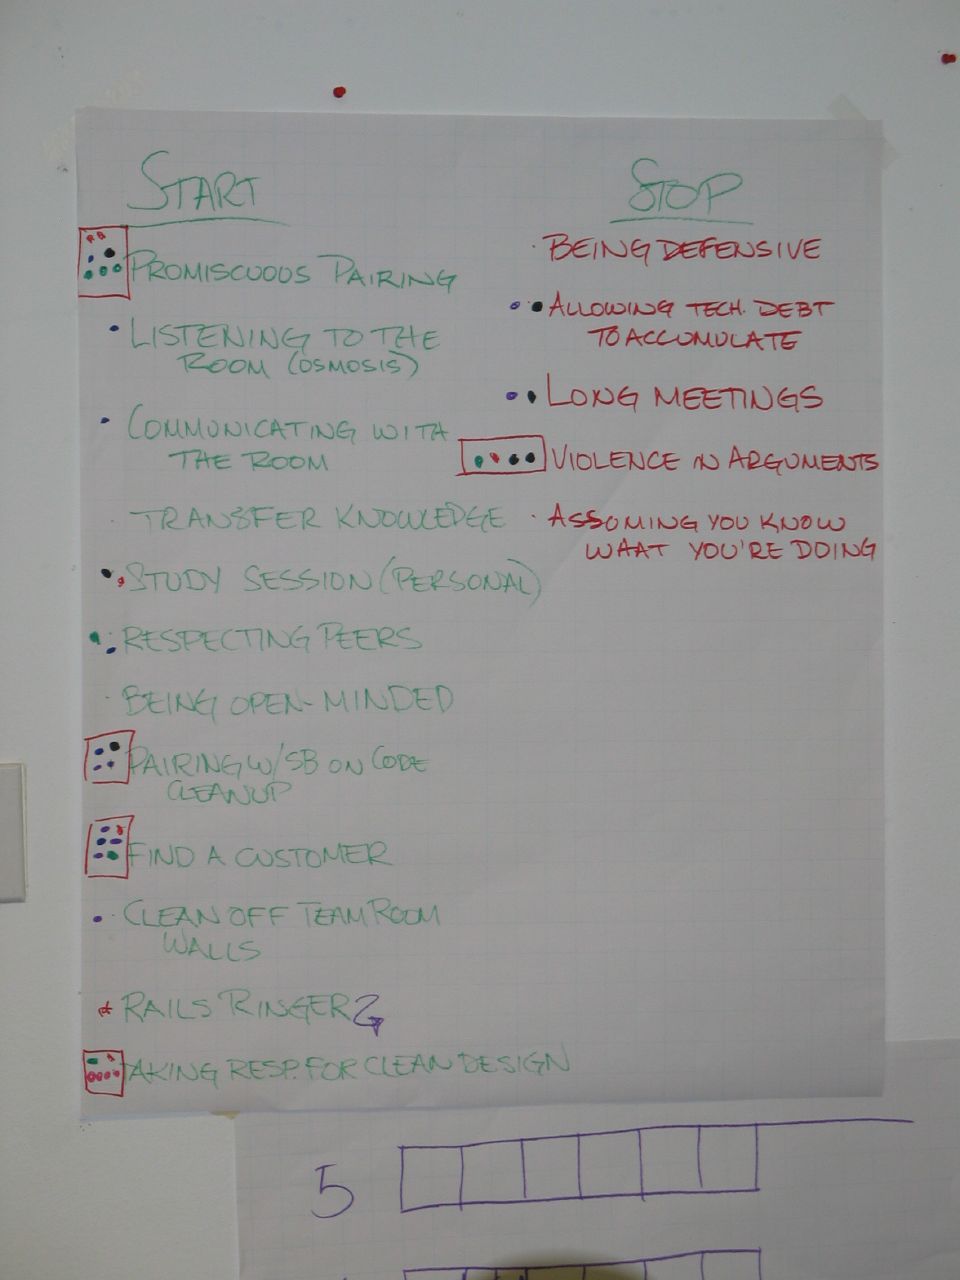 START
PROMISCUOUS PAIRING
LISTENING TO THE
ROOM (OSMOSIS)
COMMUNICATING WITH
THE ROOM
TRANSFER KNOWLEDGE
STUDY SESSION (PERSONAL)
RESPECTING PEERS
BEING OPEN-MINDED
PAIRING W/SB ON CODE
CLEANUP
FIND A CUSTOMER
CLEAN OFF TEAM ROOM
WALLS
RAILS RINGER
TAKING RESP. FOR CLEAN DESIGN
STOP
BEING DEFENSIVE
ALLOWING TECH. DEBT
TO ACCUMULATE
LONG MEETINGS
VIOLENCE IN ARGUMENTS
ASSUMING YOU KNOW
WHAT YOU'RE DOING
5